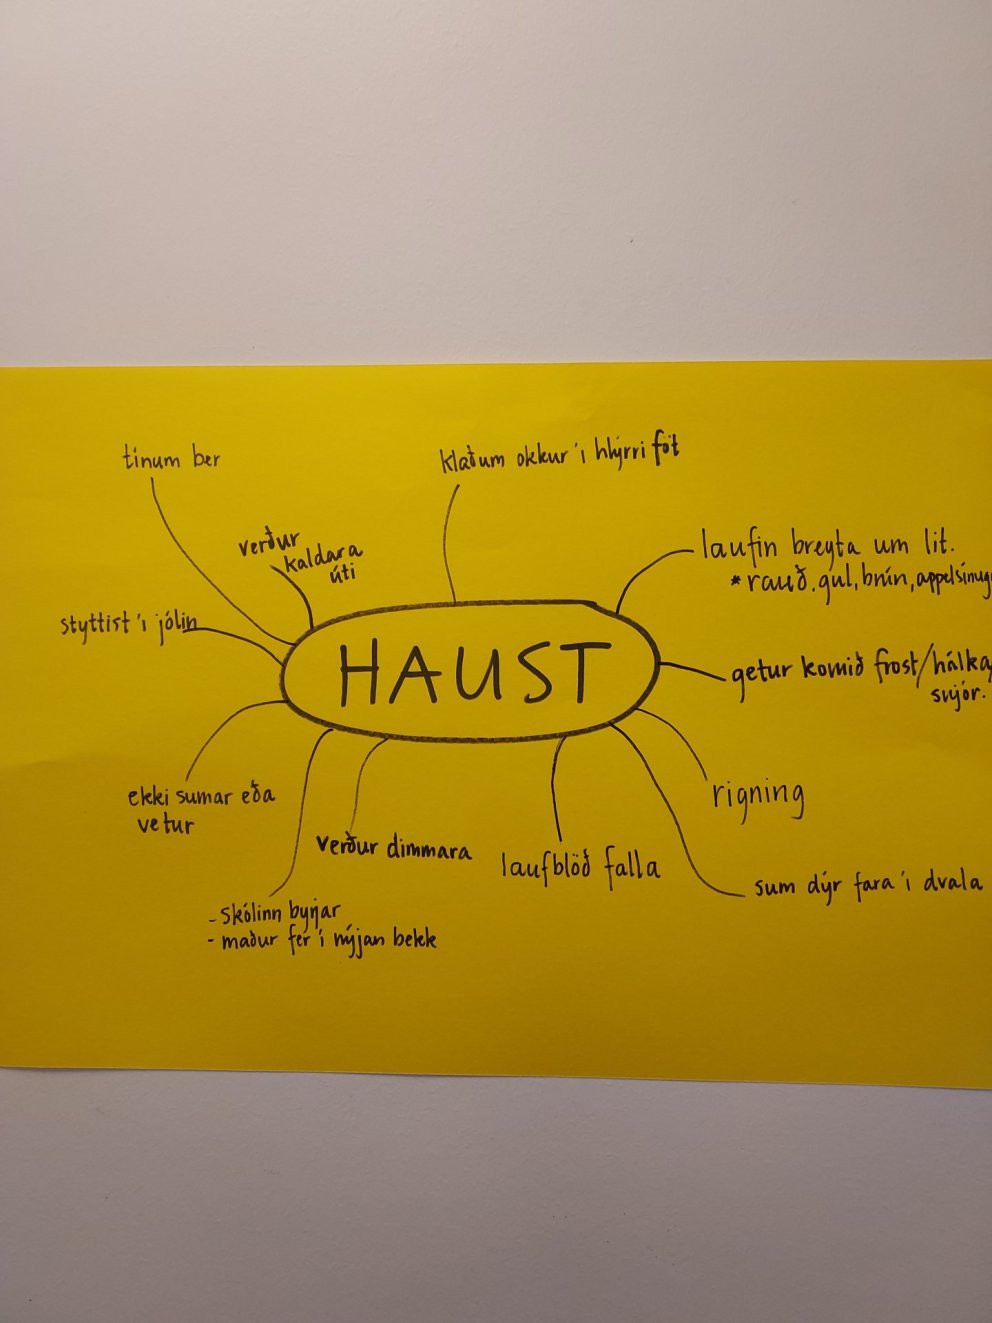 tínum ber
klæðum okkur í hlýrri föt
verður
kaldara
úti
laufin breyta um lit.
* rauð, gul, brún, appelsínug
styttist í jólin
HAUST
getur komið frost/hálka
snjór.
ekki sumar eða
vetur
rigning
verður dimmara
laufblöð falla
sum dýr fara í dvala
- skólinn byrjar
- maður fer í nýjan bekk